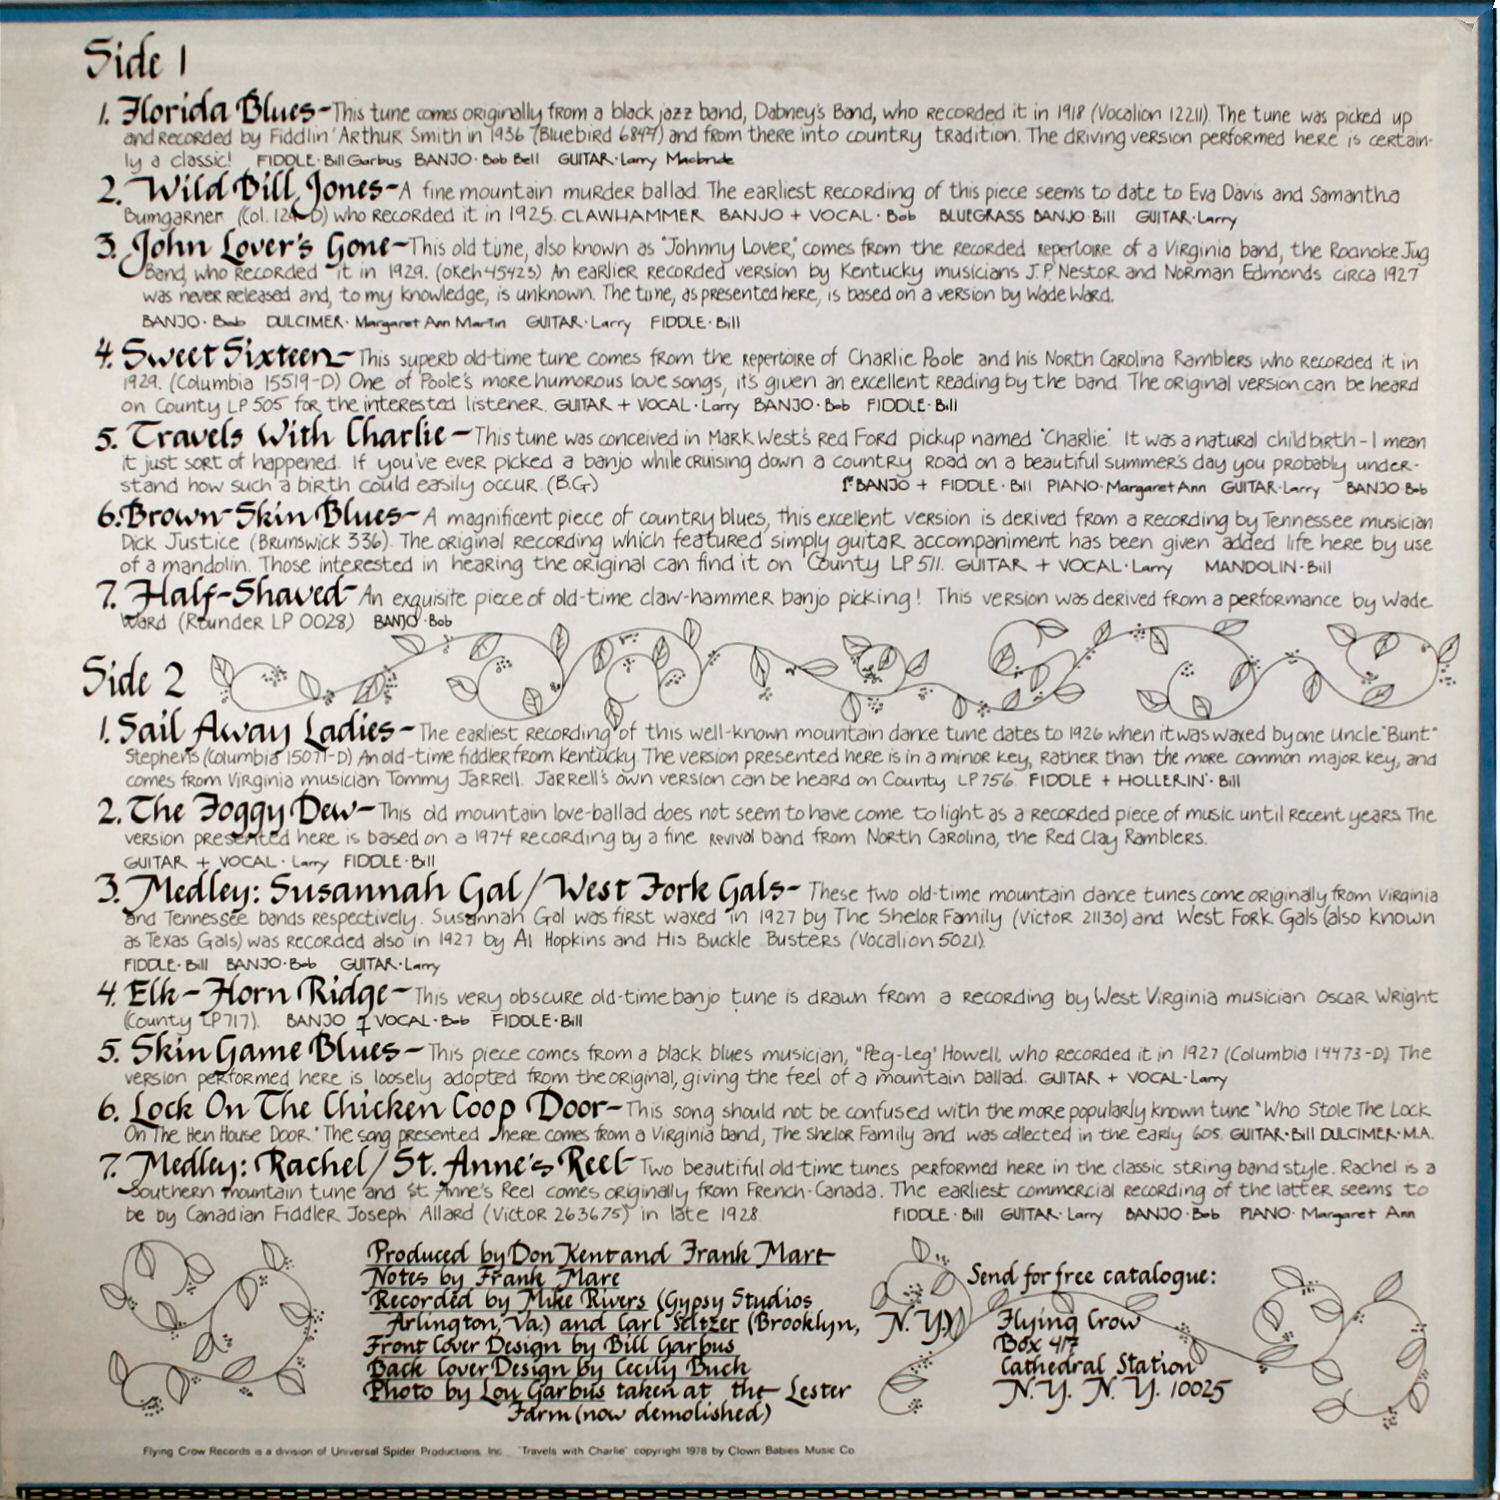 Side 1
1. Florida Blues - This tune comes originally from a black jazz band, Dabney's Band, who recorded it in 1918 (Vocalion 12211). The tune was picked up
and recorded by Fiddlin' Arthur Smith in 1936 (Bluebird 6844) and from there into country tradition. The driving version performed here is certain-
ly a classic! FIDDLE·Bill Garbus BANJO·Bob Bell GUITAR·Larry Macbride
2. Wild Bill Jones - A fine mountain murder ballad. The earliest recording of this piece seems to date to Eva Davis and Samantha
Bumgarner (Col. D) who recorded it in 1925. CLAWHAMMER BANJO + VOCAL·Bob BLUEGRASS BANJO·Bill GUITAR·Larry
3. John Lover's Gone - This old tune, also known as "Johnny Lover," comes from the recorded repertoire of a Virginia band, the Roanoke Jug
Band, who recorded it in 1929. (Okeh 45423) An earlier recorded version by Kentucky musicians J.P. Nestor and Norman Edmonds circa 1927
was never released and, to my knowledge, is unknown. The tune, as presented here, is based on a version by Wade Ward.
BANJO·Bob DULCIMER·Margaret Ann Martin GUITAR·Larry FIDDLE·Bill
4. Sweet Sixteen - This superb old-time tune comes from the repertoire of Charlie Poole and his North Carolina Ramblers who recorded it in
1929. (Columbia 15519-D) One of Poole's more humorous love songs, it's given an excellent reading by the band. The original version can be heard
on County LP 505 for the interested listener. GUITAR + VOCAL·Larry BANJO·Bob FIDDLE·Bill
5. Travels With Charlie - This tune was conceived in Mark West's red Ford pickup named "Charlie". It was a natural childbirth - I mean
it just sort of happened. If you've ever picked a banjo while cruising down a country road on a beautiful summer's day you probably under-
stand how such a birth could easily occur. (B.G.) 1st BANJO + FIDDLE·Bill PIANO·Margaret Ann GUITAR·Larry BANJO·Bob
6. Brown Skin Blues - A magnificent piece of country blues, this excellent version is derived from a recording by Tennessee musician
Dick Justice (Brunswick 336). The original recording which featured simply guitar accompaniment has been given added life here by use
of a mandolin. Those interested in hearing the original can find it on County LP 511. GUITAR + VOCAL·Larry MANDOLIN·Bill
7. Half-Shaved - An exquisite piece of old-time claw-hammer banjo picking! This version was derived from a performance by Wade
Ward (Rounder LP 0028) BANJO·Bob
Side 2
1. Sail Away Ladies - The earliest recording of this well-known mountain dance tune dates to 1926 when it was waxed by one Uncle "Bunt"
Stephens (Columbia 15071-D) An old-time fiddler from Kentucky. The version presented here is in a minor key, rather than the more common major key, and
comes from Virginia musician Tommy Jarrell. Jarrell's own version can be heard on County LP 756. FIDDLE + HOLLERIN'·Bill
2. The Foggy Dew - This old mountain love-ballad does not seem to have come to light as a recorded piece of music until recent years. The
version presented here is based on a 1974 recording by a fine revival band from North Carolina, the Red Clay Ramblers.
GUITAR + VOCAL·Larry FIDDLE·Bill
3. Medley: Susannah Gal/West Fork Gals - These two old-time mountain dance tunes come originally from Virginia
and Tennessee bands respectively. Susannah Gal was first waxed in 1927 by The Shelor Family (Victor 21130) and West Fork Gals (also known
as Texas Gals) was recorded also in 1927 by Al Hopkins and His Buckle Busters (Vocalion 5021).
FIDDLE·Bill BANJO·Bob GUITAR·Larry
4. Elk-Horn Ridge - This very obscure old-time banjo tune is drawn from a recording by West Virginia musician Oscar Wright
(County LP717). BANJO + VOCAL·Bob FIDDLE·Bill
5. Skin Game Blues - This piece comes from a black blues musician, "Peg-Leg" Howell, who recorded it in 1927 (Columbia 14473-D). The
version performed here is loosely adopted from the original, giving the feel of a mountain ballad. GUITAR + VOCAL·Larry
6. Lock On The Chicken Coop Door - This song should not be confused with the more popularly known tune "Who Stole The Lock
On The Hen House Door." The song presented here comes from a Virginia band, The Shelor Family and was collected in the early 60s. GUITAR·Bill DULCIMER·M.A.
7. Medley: Rachel/St. Anne's Reel - Two beautiful old-time tunes performed here in the classic string band style. Rachel is a
Southern mountain tune and St. Anne's Reel comes originally from French-Canada. The earliest commercial recording of the latter seems to
be by Canadian Fiddler Joseph Allard (Victor 263675) in late 1928. FIDDLE·Bill GUITAR·Larry BANJO·Bob PIANO·Margaret Ann
Produced by Don Kent and Frank Mare
Notes by Frank Mare
Recorded by Mike Rivers (Gypsy Studios
Arlington, Va.) and Carl Seltzer (Brooklyn, N.Y.)
Front Cover Design by Bill Garbus
Back Cover Design by Cecily Buch
Photo by Lou Garbus taken at the Lester
Farm (now demolished)
Send for free catalogue:
Flying Crow
Box 417
Cathedral Station
N.Y. N.Y. 10025
Flying Crow Records is a division of Universal Spider Productions, Inc. "Travels with Charlie" copyright 1978 by Clown Babies Music Co